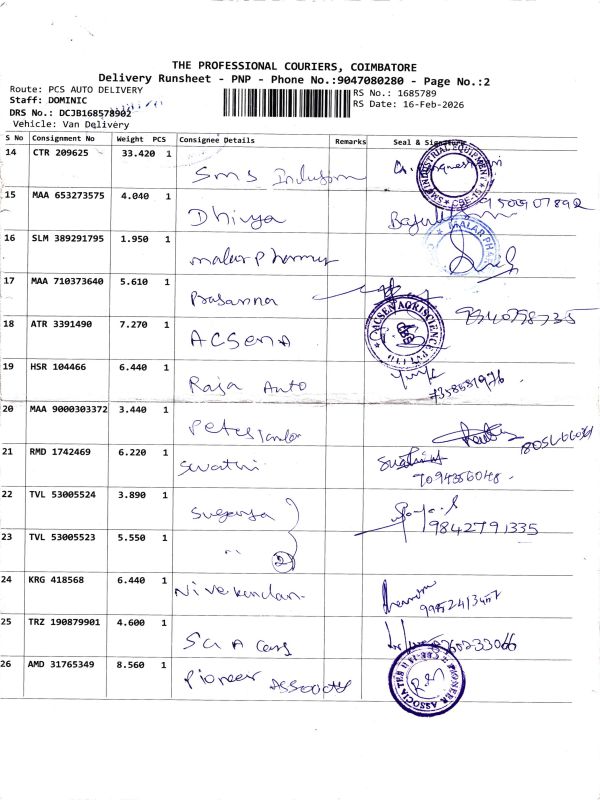 THE PROFESSIONAL COURIERS, COIMBATORE
Delivery Runsheet - PNP - Phone No.:9047080280 - Page No.:2
Route: PCS AUTO DELIVERY
Staff: DOMINIC
DRS No.: DCJB168578902
Vehicle: Van Delivery
RS No.: 1685789
RS Date: 16-Feb-2026
S No Consignment No Weight PCS Consignee Details Remarks Seal & Signature
14 CTR 209625 33.420 1 Sms INDUSTRIAL EQUIPMENT
15 MAA 653273575 4.040 1 Dhivya
16 SLM 389291795 1.950 1 malar pharmy MALAR PHAR
17 MAA 710373640 5.610 1 Prasanna 9340798735
18 ATR 3391490 7.270 1 ACSENA ACSEN AGRISCIENCE PVT LTD
19 HSR 104466 6.440 1 Raja Auto
20 MAA 9000303372 3.440 1
21 RMD 1742469 6.220 1 Swathi Swathi 7094356048
22 TVL 53005524 3.890 1 Suganya 9842791335
23 TVL 53005523 5.550 1 " 2
24 KRG 418568 6.440 1 Nivekandan
25 TRZ 190879901 4.600 1 Sai A Cars
26 AMD 31765349 8.560 1 Pioneer Associates PIONEER ASSOCIATES